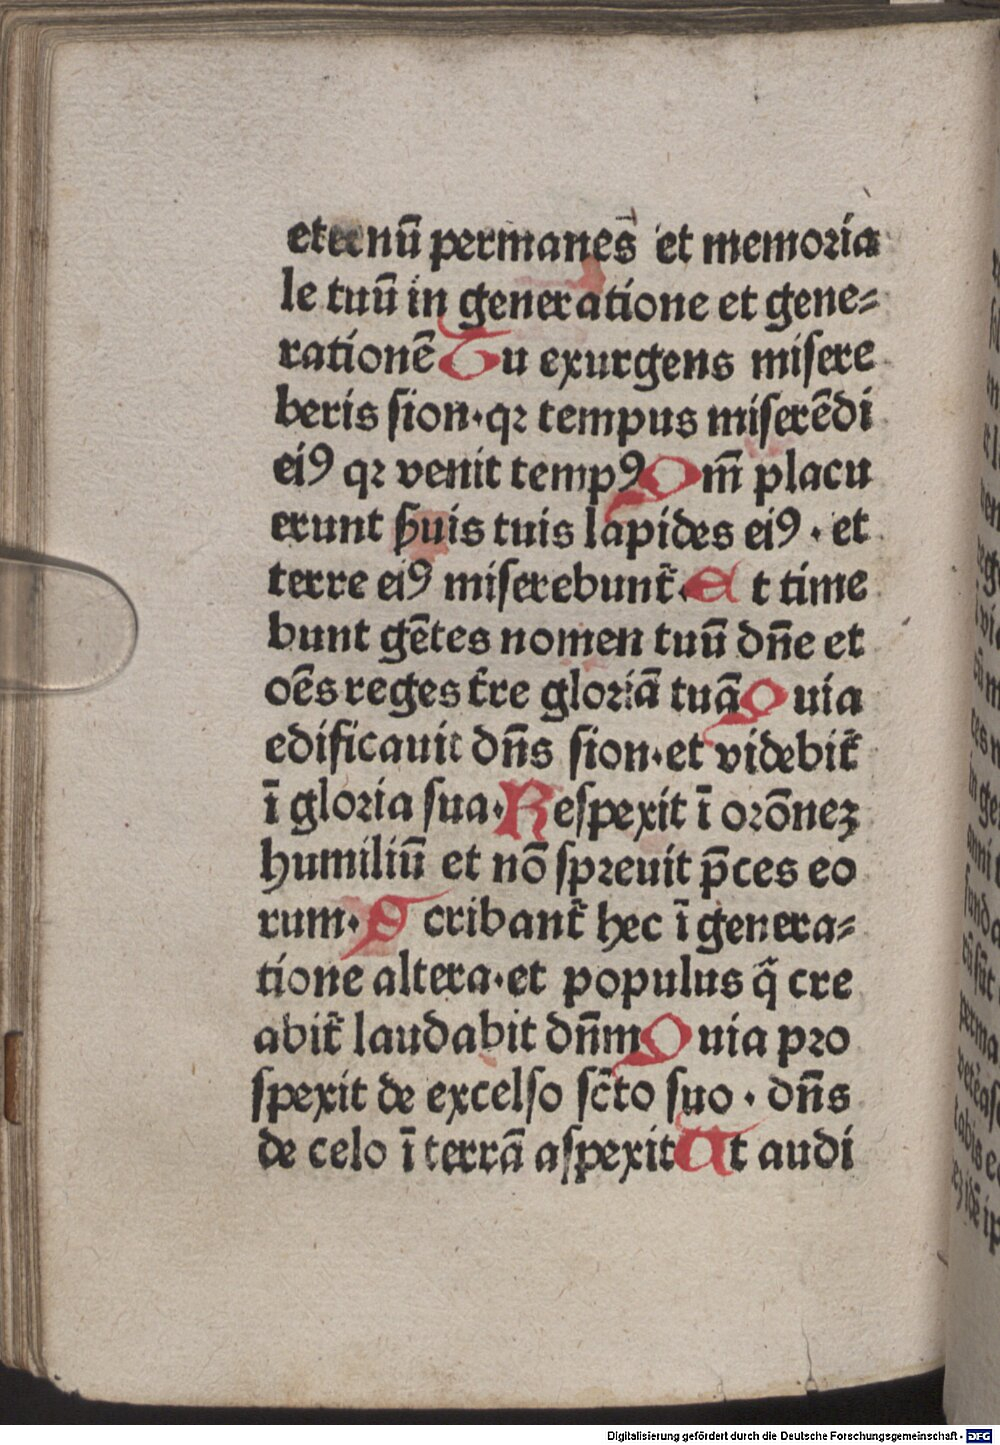 eternū permanēs et memoria
le tuū in generatione et gene⸗
rationē Tu exurgens misere
beris sion · qꝛ tempus miserēdi
eiꝯ qꝛ venit tempꝯ Qm̄ placu
erunt ẜuis tuis lapides eiꝯ · et
terre eiꝯ miserebunt᷑ · Et time
bunt gētes nomen tuū dn̄e et
oēs reges t᷑re gloriā tuā Quia
edificauit dn̄s sion · et videbit᷑
ī gloria sua · Respexit ī orōneꝫ
humiliū et nō spreuit p̄ces eo
rum · Scribant᷑ hec ī genera⸗
tione altera · et populus q̄ cre
abit᷑ laudabit dn̄m Quia pro
spexit de excelso sc̄to suo · dn̄s
de celo ī terrā aspexit Ut audi
Digitalisierung gefördert durch die Deutsche Forschungsgemeinschaft - DFG